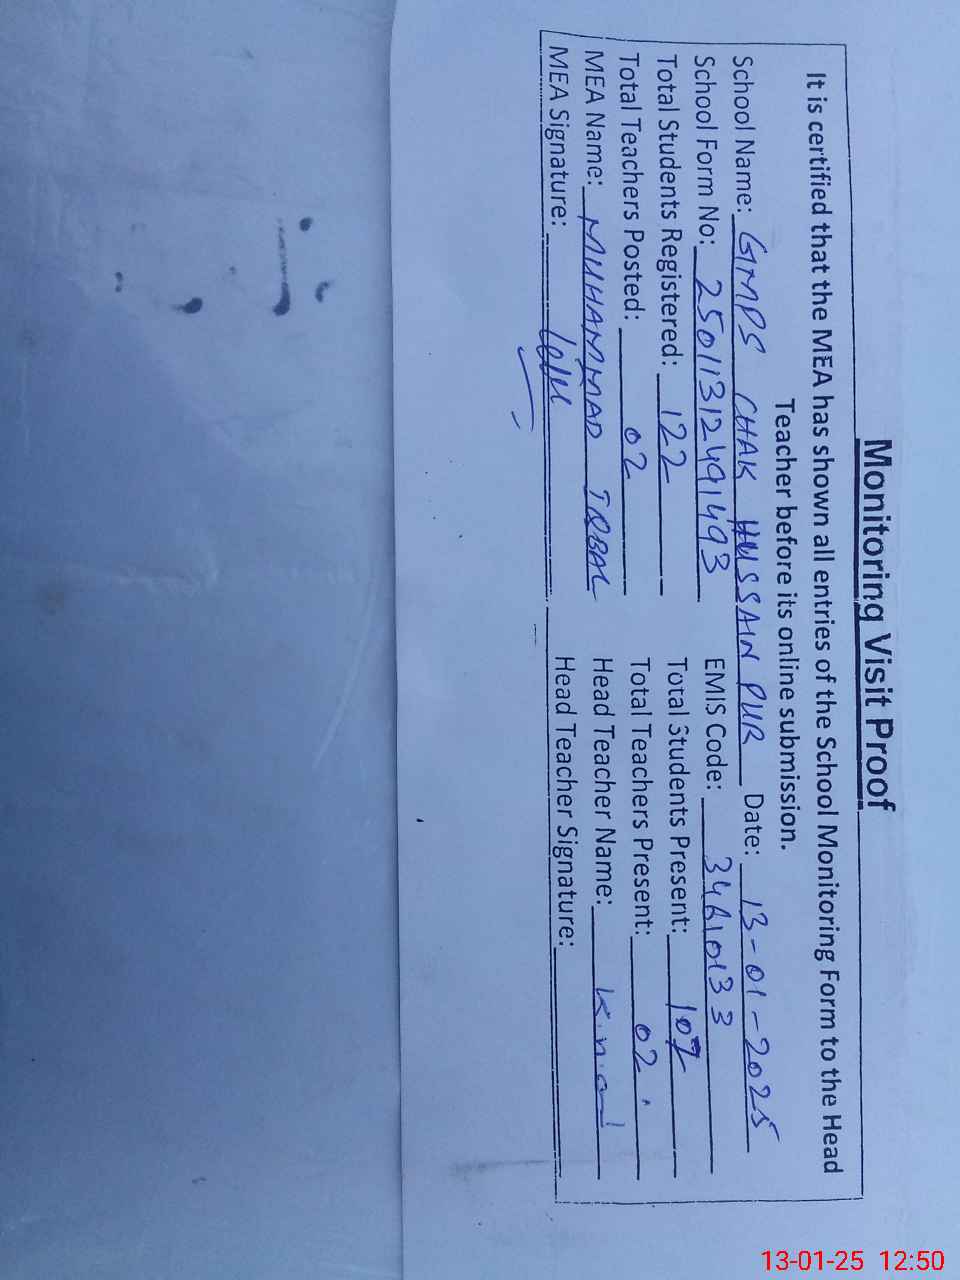 Monitoring Visit Proof
It is certified that the MEA has shown all entries of the School Monitoring Form to the Head
Teacher before its online submission.
School Name: GMPS CHAK HUSSAIN PUR Date: 13-01-2025
School Form No: 25011312491493 EMIS Code: 34610133
Total Students Registered: 122 Total Students Present: 107
Total Teachers Posted: 02 Total Teachers Present: 02
MEA Name: MUHAMMAD IQBAL Head Teacher Name:
MEA Signature: Head Teacher Signature:
13-01-25 12:50